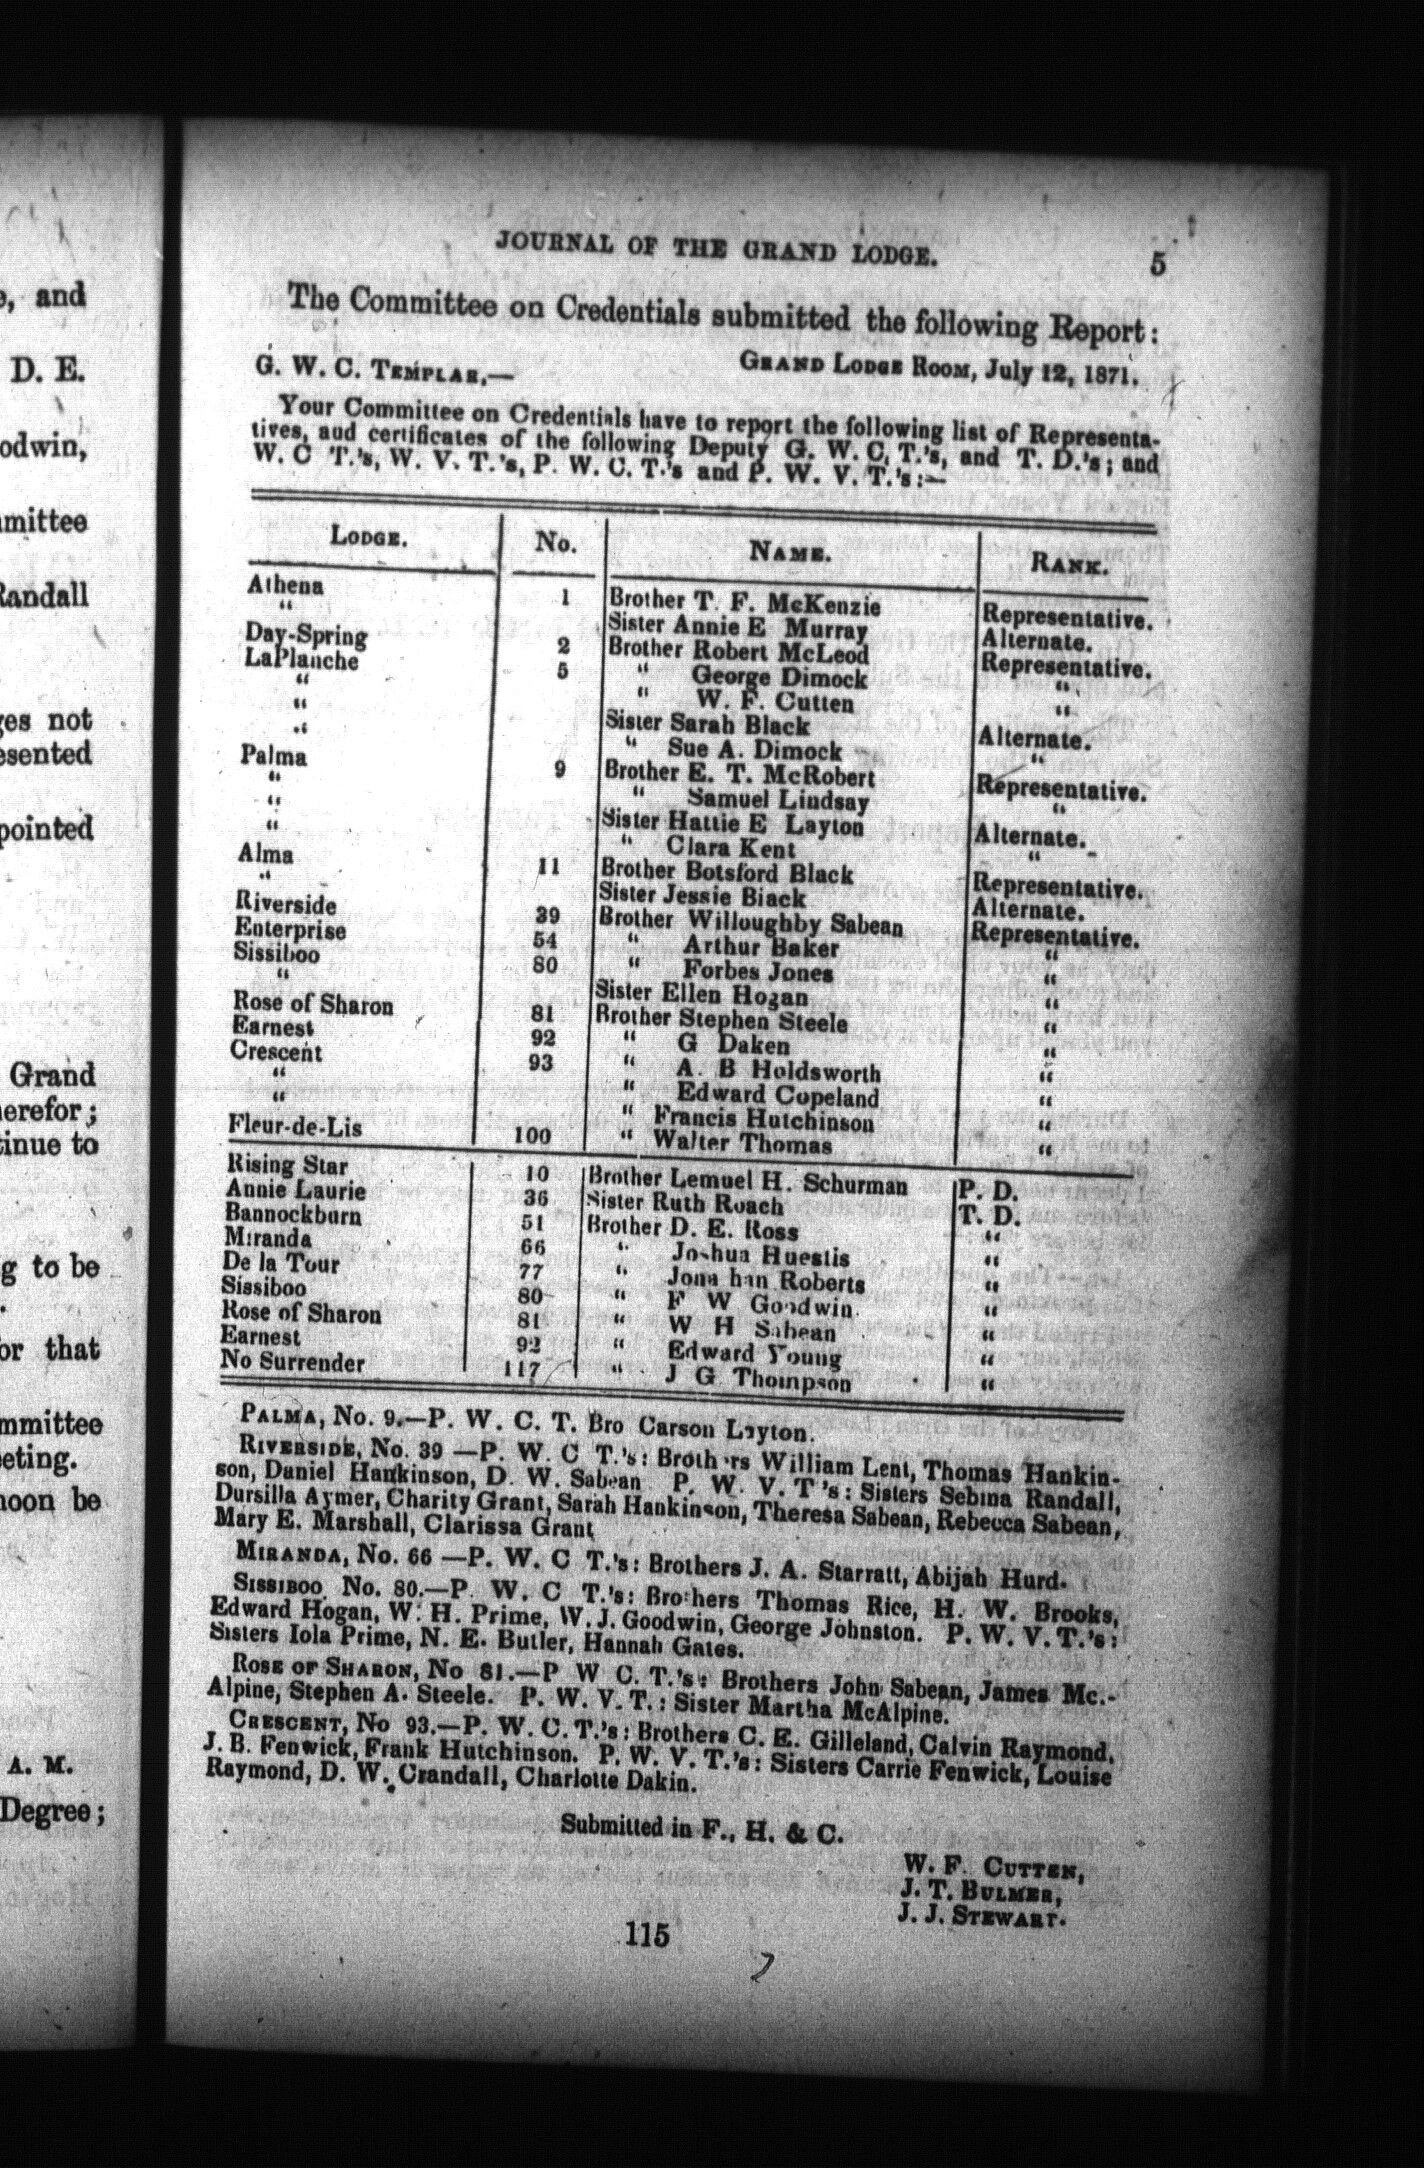 e, and
D. E.
odwin,
mmittee
Randall
ges not
esented
pointed
Grand
herefor;
tinue to
g to be
or that
mmittee
eeting.
noon be
A. M.
Degree;
JOURNAL OF THE GRAND LODGE. 5
The Committee on Credentials submitted the following Report:
GRAND LODGE ROOM, July 12, 1871.
G. W. C. TEMPLAR,—
Your Committee on Credentials have to report the following list of Representa-
tives, aud certificates of the following Deputy G. W. C. T.'s, and T. D.'s; and
W. C T.'s, W. V. T.'s, P. W. C. T.'s and P. W. V. T.'s:—
LODGE. No. NAME. RANK.
Athena 1 Brother T. F. McKenzie Representative.
" Sister Annie E Murray Alternate.
Day-Spring 2 Brother Robert McLeod Representative.
LaPlanche 5 " George Dimock "
" " W. F. Cutten "
" Sister Sarah Black Alternate.
" " Sue A. Dimock "
Palma 9 Brother E. T. McRobert Representative.
" " Samuel Lindsay "
" Sister Hattie E Layton Alternate.
" " Clara Kent "
Alma 11 Brother Botsford Black Representative.
" Sister Jessie Black Alternate.
Riverside 39 Brother Willoughby Sabean Representative.
Enterprise 54 " Arthur Baker "
Sissiboo 80 " Forbes Jones "
" Sister Ellen Hogan "
Rose of Sharon 81 Brother Stephen Steele "
Earnest 92 " G Daken "
Crescent 93 " A. B Holdsworth "
" " Edward Copeland "
" " Francis Hutchinson "
Fleur-de-Lis 100 " Walter Thomas "
Rising Star 10 Brother Lemuel H. Schurman P. D.
Annie Laurie 36 Sister Ruth Roach T. D.
Bannockburn 51 Brother D. E. Ross "
Miranda 66 " Joshua Huestis "
De la Tour 77 " Jona han Roberts "
Sissiboo 80 " F W Goodwin "
Rose of Sharon 81 " W H Sabean "
Earnest 92 " Edward Young "
No Surrender 117 " J G Thompson "
PALMA, No. 9.—P. W. C. T. Bro Carson Layton.
RIVERSIDE, No. 39 —P. W. C T.'s: Broth rs William Lent, Thomas Hankin-
son, Daniel Hankinson, D. W. Sabean P. W. V. T 's: Sisters Sebina Randall,
Dursilla Aymer, Charity Grant, Sarah Hankinson, Theresa Sabean, Rebecca Sabean,
Mary E. Marshall, Clarissa Grant
MIRANDA, No. 66 —P. W. C T.'s: Brothers J. A. Starratt, Abijah Hurd.
SISSIBOO No. 80.—P. W. C T.'s: Brothers Thomas Rice, H. W. Brooks,
Edward Hogan, W. H. Prime, W. J. Goodwin, George Johnston. P. W. V. T.'s:
Sisters Iola Prime, N. E. Butler, Hannah Gates.
ROSE OF SHARON, No 81.—P W C. T.'s: Brothers John Sabean, James Mc.-
Alpine, Stephen A. Steele. P. W. V. T.: Sister Martha McAlpine.
CRESCENT, No 93.—P. W. C. T.'s: Brothers C. E. Gilleland, Calvin Raymond,
J. B. Fenwick, Frank Hutchinson. P. W. V. T.'s: Sisters Carrie Fenwick, Louise
Raymond, D. W. Crandall, Charlotte Dakin.
Submitted in F., H. & C.
W. F. CUTTEN,
J. T. BULMER,
J. J. STEWART.
115